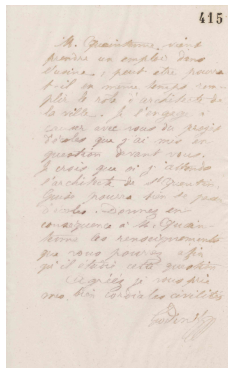 415
M. Quaintenne vient
prendre un emploi dans
l'usine, peut être pourra
t-il en même temps rem-
plir le rôle d'architecte de
la ville. Je l'engage à
causer avec vous du projet
d'écoles que j'ai mis en
question devant vous.
Je crois que si j'attends
l'architecte de St Quentin
Guise pourra bien se passer
d'écoles. Donnez en
conséquence à M. Quain-
tenne les renseignements
que vous pourrez afin
qu'il étudie cette question
Agréez je vous prie
mes bien cordiales civilités
Godin